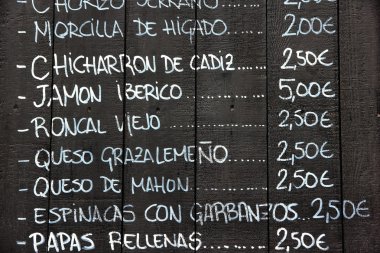 - CHORIZO SERRANO ..... 2,00€
- MORCILLA DE HIGADO. ... 2,00€
- CHICHARRON DE CADIZ....... 2,50€
- JAMON IBERICO ........ 5,00€
- RONCAL VIEJO ............. 2,50€
- QUESO GRAZALEMEÑO....... 2,50€
- QUESO DE MAHON ......... 2,50€
- ESPINACAS CON GARBANZOS...2,50€
- PAPAS RELLENAS......... 2,50€